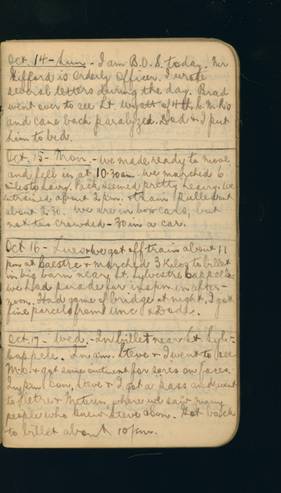 Oct. 14 - Sun. - I am B.O.S. today. Mr
Gifford is Orderly Officer. I wrote
several letters during the day. Brad
went over to see Lt. Wyatt of 4th C.M.R's
and came back paralyzed. Dad & I put
him to bed.
Oct. 15 - Mon. - We made ready to move
and fell in at 10.30 am. We marched 6
miles to Savy. Pack seemed pretty heavy. We
entrained about 2 pm. & train pulled out
about 3.30. We are in box cars, but
not too crowded - 30 in a car.
Oct 16 - Tues. we got off train about 11
pm at Caestre & marched 3 Kilos to billet
in big barn near St. Sylvestre Cappel.
we had parade for inspn in after-
noon. Had game of bridge at night. I got
fine parcels from Unc
Oct. 17 - Wed. - In billet near St. Sylv-
Cappele. In am. Steve & I went to see
M.O. & got some ointment for sores on faces.
In pm Dom, Steve & I got a pass and went
to Fletre & Meteren where we saw many
people who knew Steve & Dom. Got back
to billet about 10 pm.